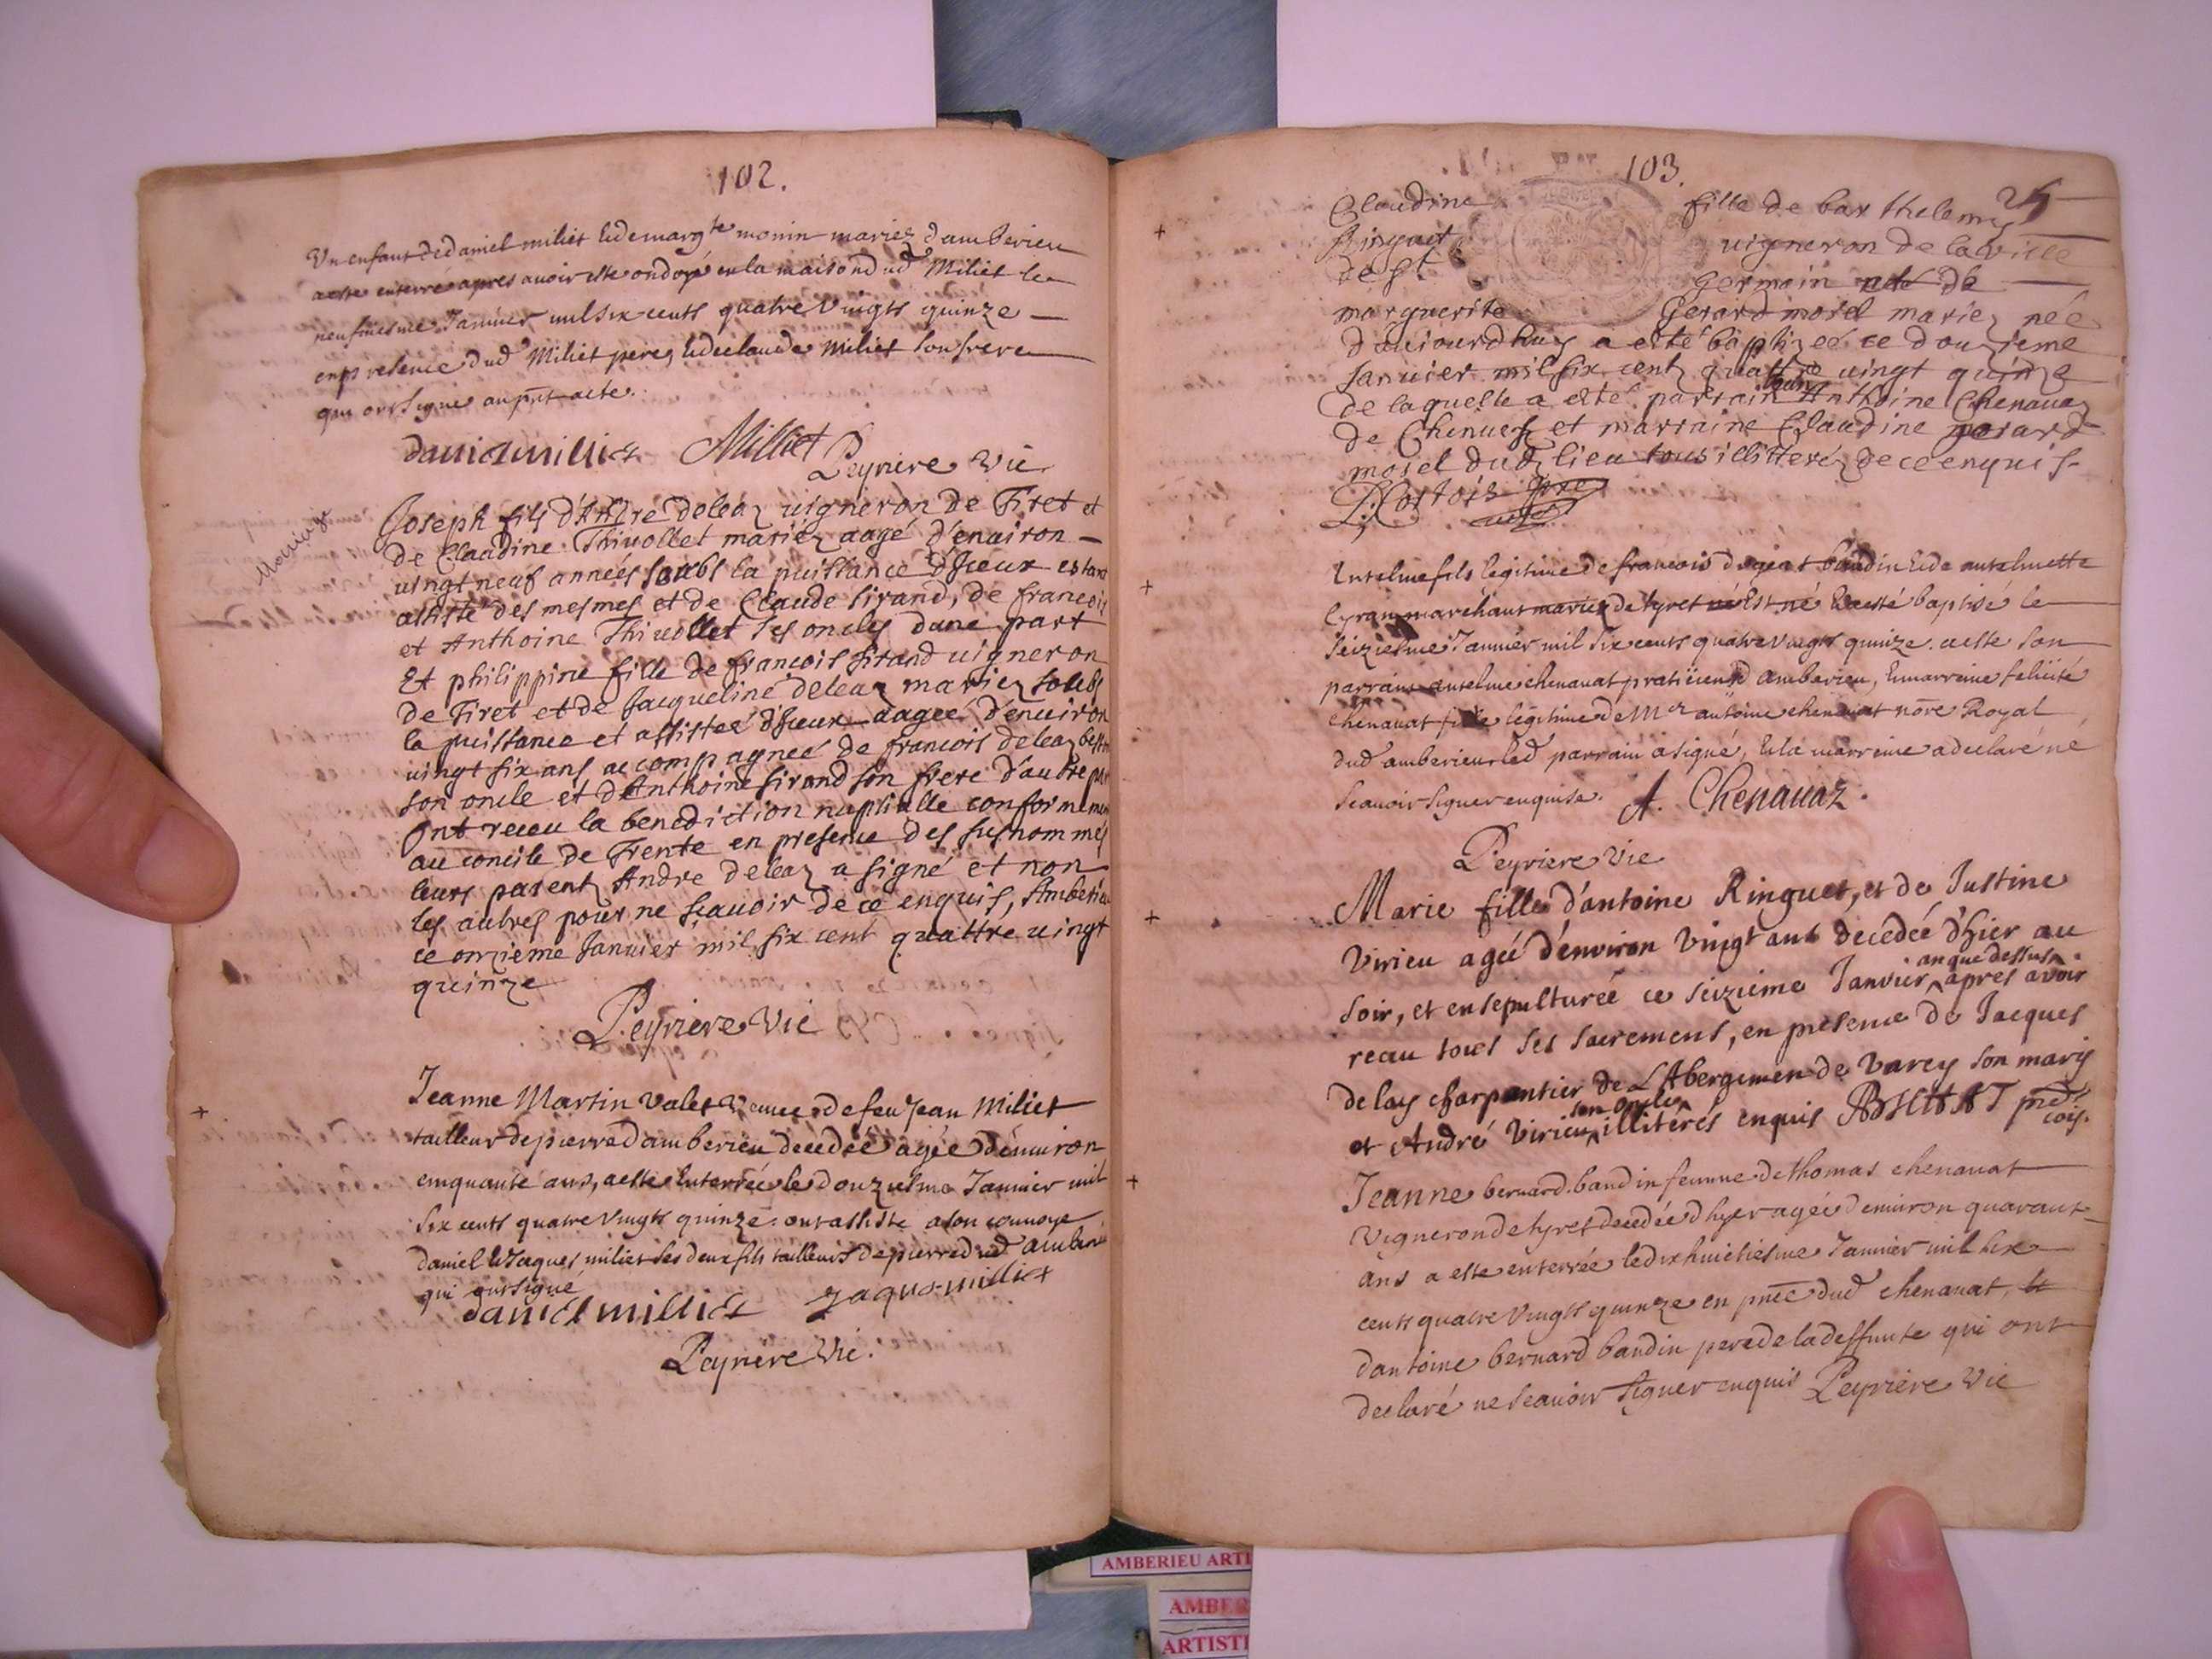 102.
Un enfant de daniel miliet & de marg.te monin mariez damberieu
a este enterré apres avoir este ondoyé en la maison dud miliet le
neufuiesme Janvier mil six cents quatre vingts quinze
en presence dud Miliet pere, & de claude Miliet son frere
qui ont signé au pnt acte.
daniel millier Milliet
Peyriere Vic
Mariage
Joseph fils d'Andre deleaz uigneron de Tiret et
de Claudine Thiuollet mariez aagé d'enuiron
uingt neuf années soubs la puissance d'Jceux estant
assisté des mesmes et de Claude sirand, de francois
et Anthoine Thiuollet ses oncles dune part
Et philippine fille de francois sirand uigneron
de Tiret et de Jacqueline deleaz mariez soubs
la puissance et assistée d'Jceux aagée d'enuiron
uingt six ans accompagnée de francois deleaz
son oncle et d'Anthoine sirand son frere d'autre part
Ont receu la benediction nuptialle conformement
au concile de Trente en presence des susnommés
leurs parentz Andre deleaz a signé et non
les autres pour ne sçauoir de ce enquis, Amberieu
ce onzieme Januier mil six cent quattre uingt
quinze
Peyriere Vic
+
Jeanne Martin Valet veuue de feu Jean Miliet
tailleur de pierre damberieu decedée agée d'enuiron
cinquante ans, a este enterrée le douziesme Januier mil
six cents quatre vingts quinze ont assisté a son conuoye
daniel & Jaques miliet ses deux fils tailleurs de pierre dud amberieu
qui ont signé
daniel millier jaque millier
Peyriere Vic.
103.
25
+
Claudine fille de barthelemy
Ringuet uigneron de la Ville
de st germain et de
marguerite Gerard morel mariez née
d'aujourdhuy a esté baptizée ce douzieme
Januier mil six cent quattre uingt quinze
de laquelle a esté parrain Anthoine Chenauaz
de Chenuesz et marraine Claudine gerard
morel dudz lieu tous illitterez de ce enquis
+
Antelme fils legitime de francois dugiest baudin & de antelmette
Cyran marchant mariez de tyret est né & a esté baptisé le
seiziesme Januier mil six cents quatre vingts quinze. a esté son
parrain antelme chenauat praticien d'amberieu, & marreine felicité
chenauat fille legitime de M.re antoine chenauat no.re Royal
dud amberieu led parrain a signé, & la marreine a declaré ne
scauoir signer enquise. A. Chenauaz.
Peyriere Vic
+
Marie fille d'antoine Ringuet, et de Justine
Virieu agée d'environ vingt ans decedée d'hier au
an que dessus
soir, et ensepulturée ce seizieme Janvier apres avoir
receu tous ses sacremens, en presence de Jacques
delay charpentier de L'Abergemen de Varey son mary
son oncle
et André Virieu illiterés enquis
+
Jeanne bernard baudin femme de thomas chenauat
Vigneron de tyret decedée d'hyer agée d'enuiron quarante
ans a este enterrée le dix huictiesme Januier mil six
cents quatre vingts quinze en pnce dud chenauat, &
d'antoine bernard baudin pere de la deffunte qui ont
declaré ne scauoir signer enquis Peyriere Vic
AMBERIEU ARTI
AMBE
ARTISTI